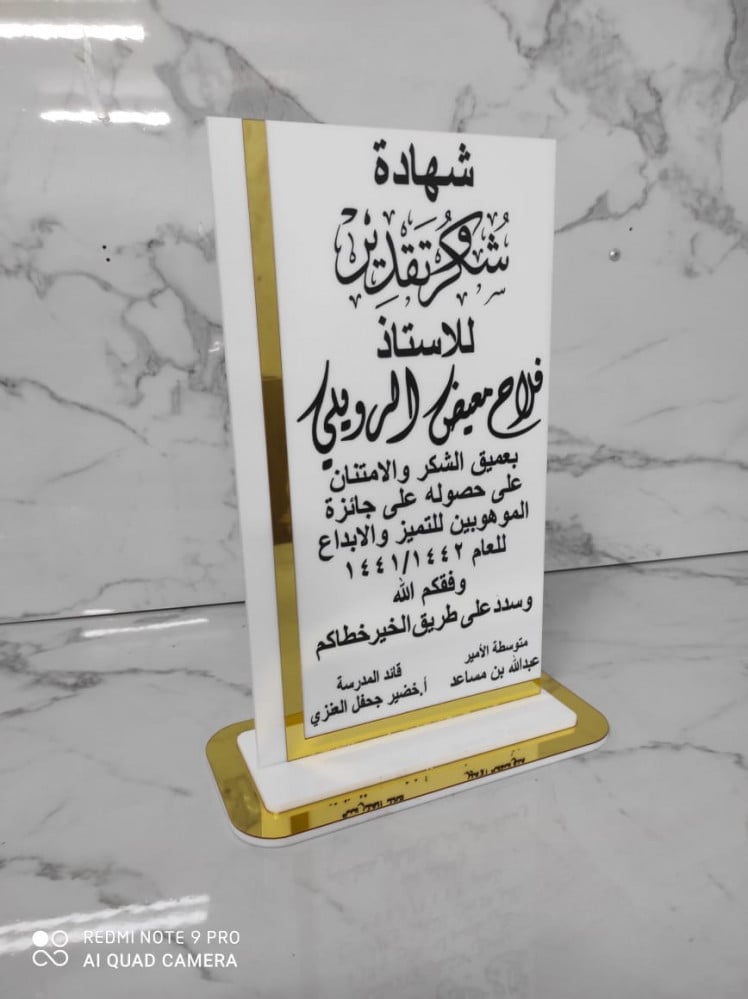 شهادة
شكر وتقدير
للاستاذ
فلاح معيض الرويلي
بعميق الشكر والامتنان
على حصوله على جائزة
الموهوبين للتميز والابداع
للعام ١٤٤١/١٤٤٢
وفقكم الله
وسدد على طريق الخير خطاكم
متوسطة الأمير
عبدالله بن مساعد
قائد المدرسة
أ.خضير جحفل العنزي
REDMI NOTE 9 PRO
AI QUAD CAMERA